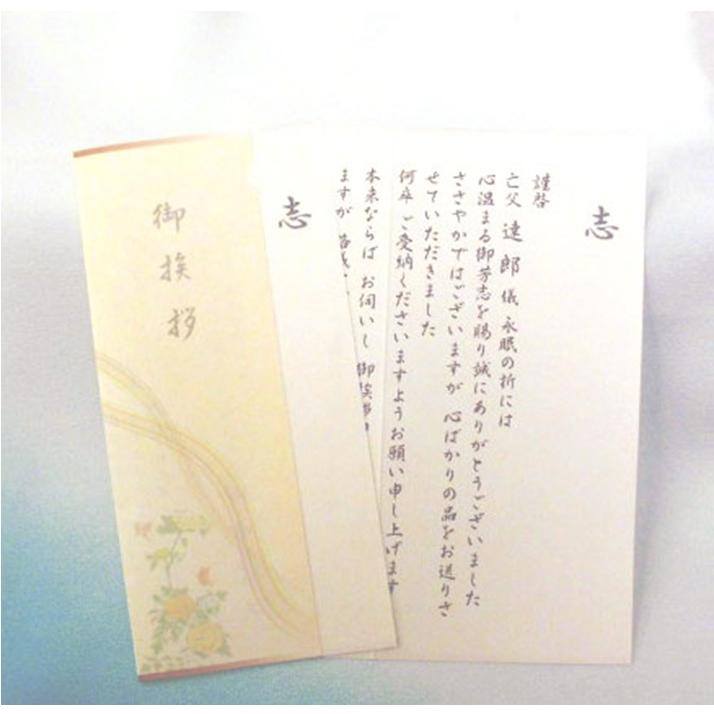 志
謹啓
亡父 達郎 儀 永眠の折には
心温まる御芳志を賜り誠にありがとうございました
ささやかではございますが 心ばかりの品をお送りさ
せていただきました
何卒 ご受納くださいますようお願い申し上げます
本来ならば お伺いし 御挨拶
ますが
志
御挨拶